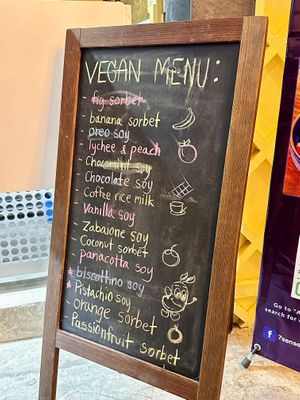 VEGAN MENU:
- fig sorbet
- banana sorbet
- oreo soy
- lychee & peach
- Chocomint soy
- Chocolate soy
- Coffee rice milk
- Vanilla soy
- Zabaione soy
- Coconut sorbet
- panacotta soy
* biscottino soy
* Pistachio soy
- orange sorbet
- Passionfruit sorbet
Go to "A
search for
f 7sense